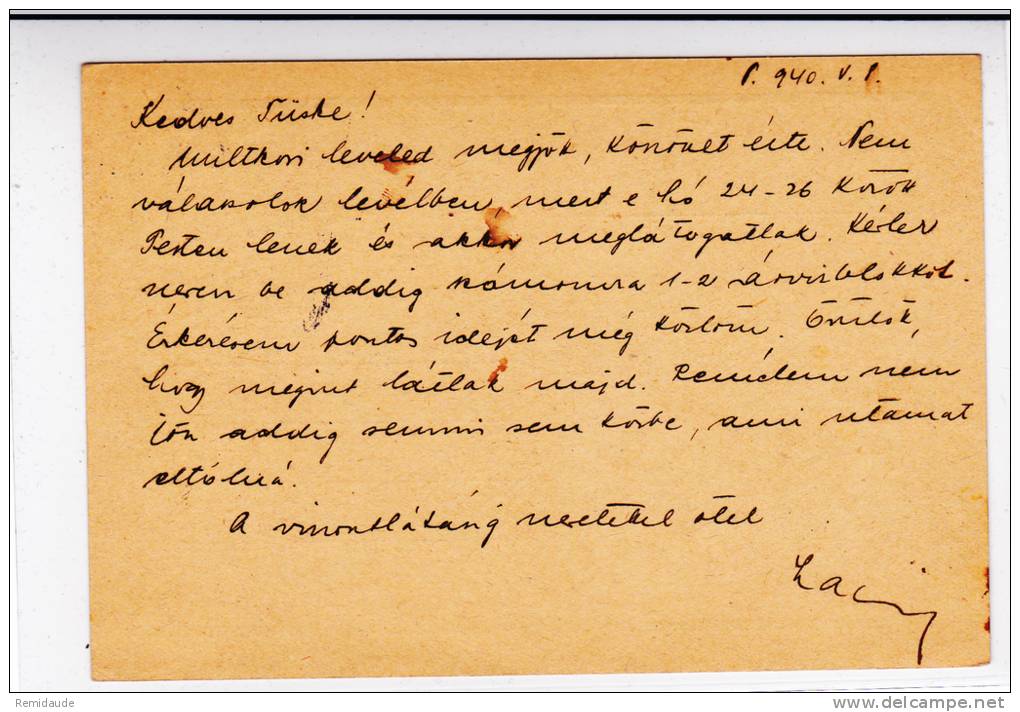 940. V.
Kedves Tüske!
Multkori leveled megjött, köszönet érte. Nem
válaszolok levélben, mert e hó 24-26 között
Pesten leszek és akkor meglátogatlak. Kérlek
szerezz be addig számomra 1-2 árvízblokkot.
Érkezésem pontos idejét még közlöm. Örülök,
hogy megint látlak majd. Remélem nem
jön addig semmi sem közbe, ami utamat
eltolná.
A viszontlátásig szeretettel ölel
Laci
Remidaude
www.delcampe.net